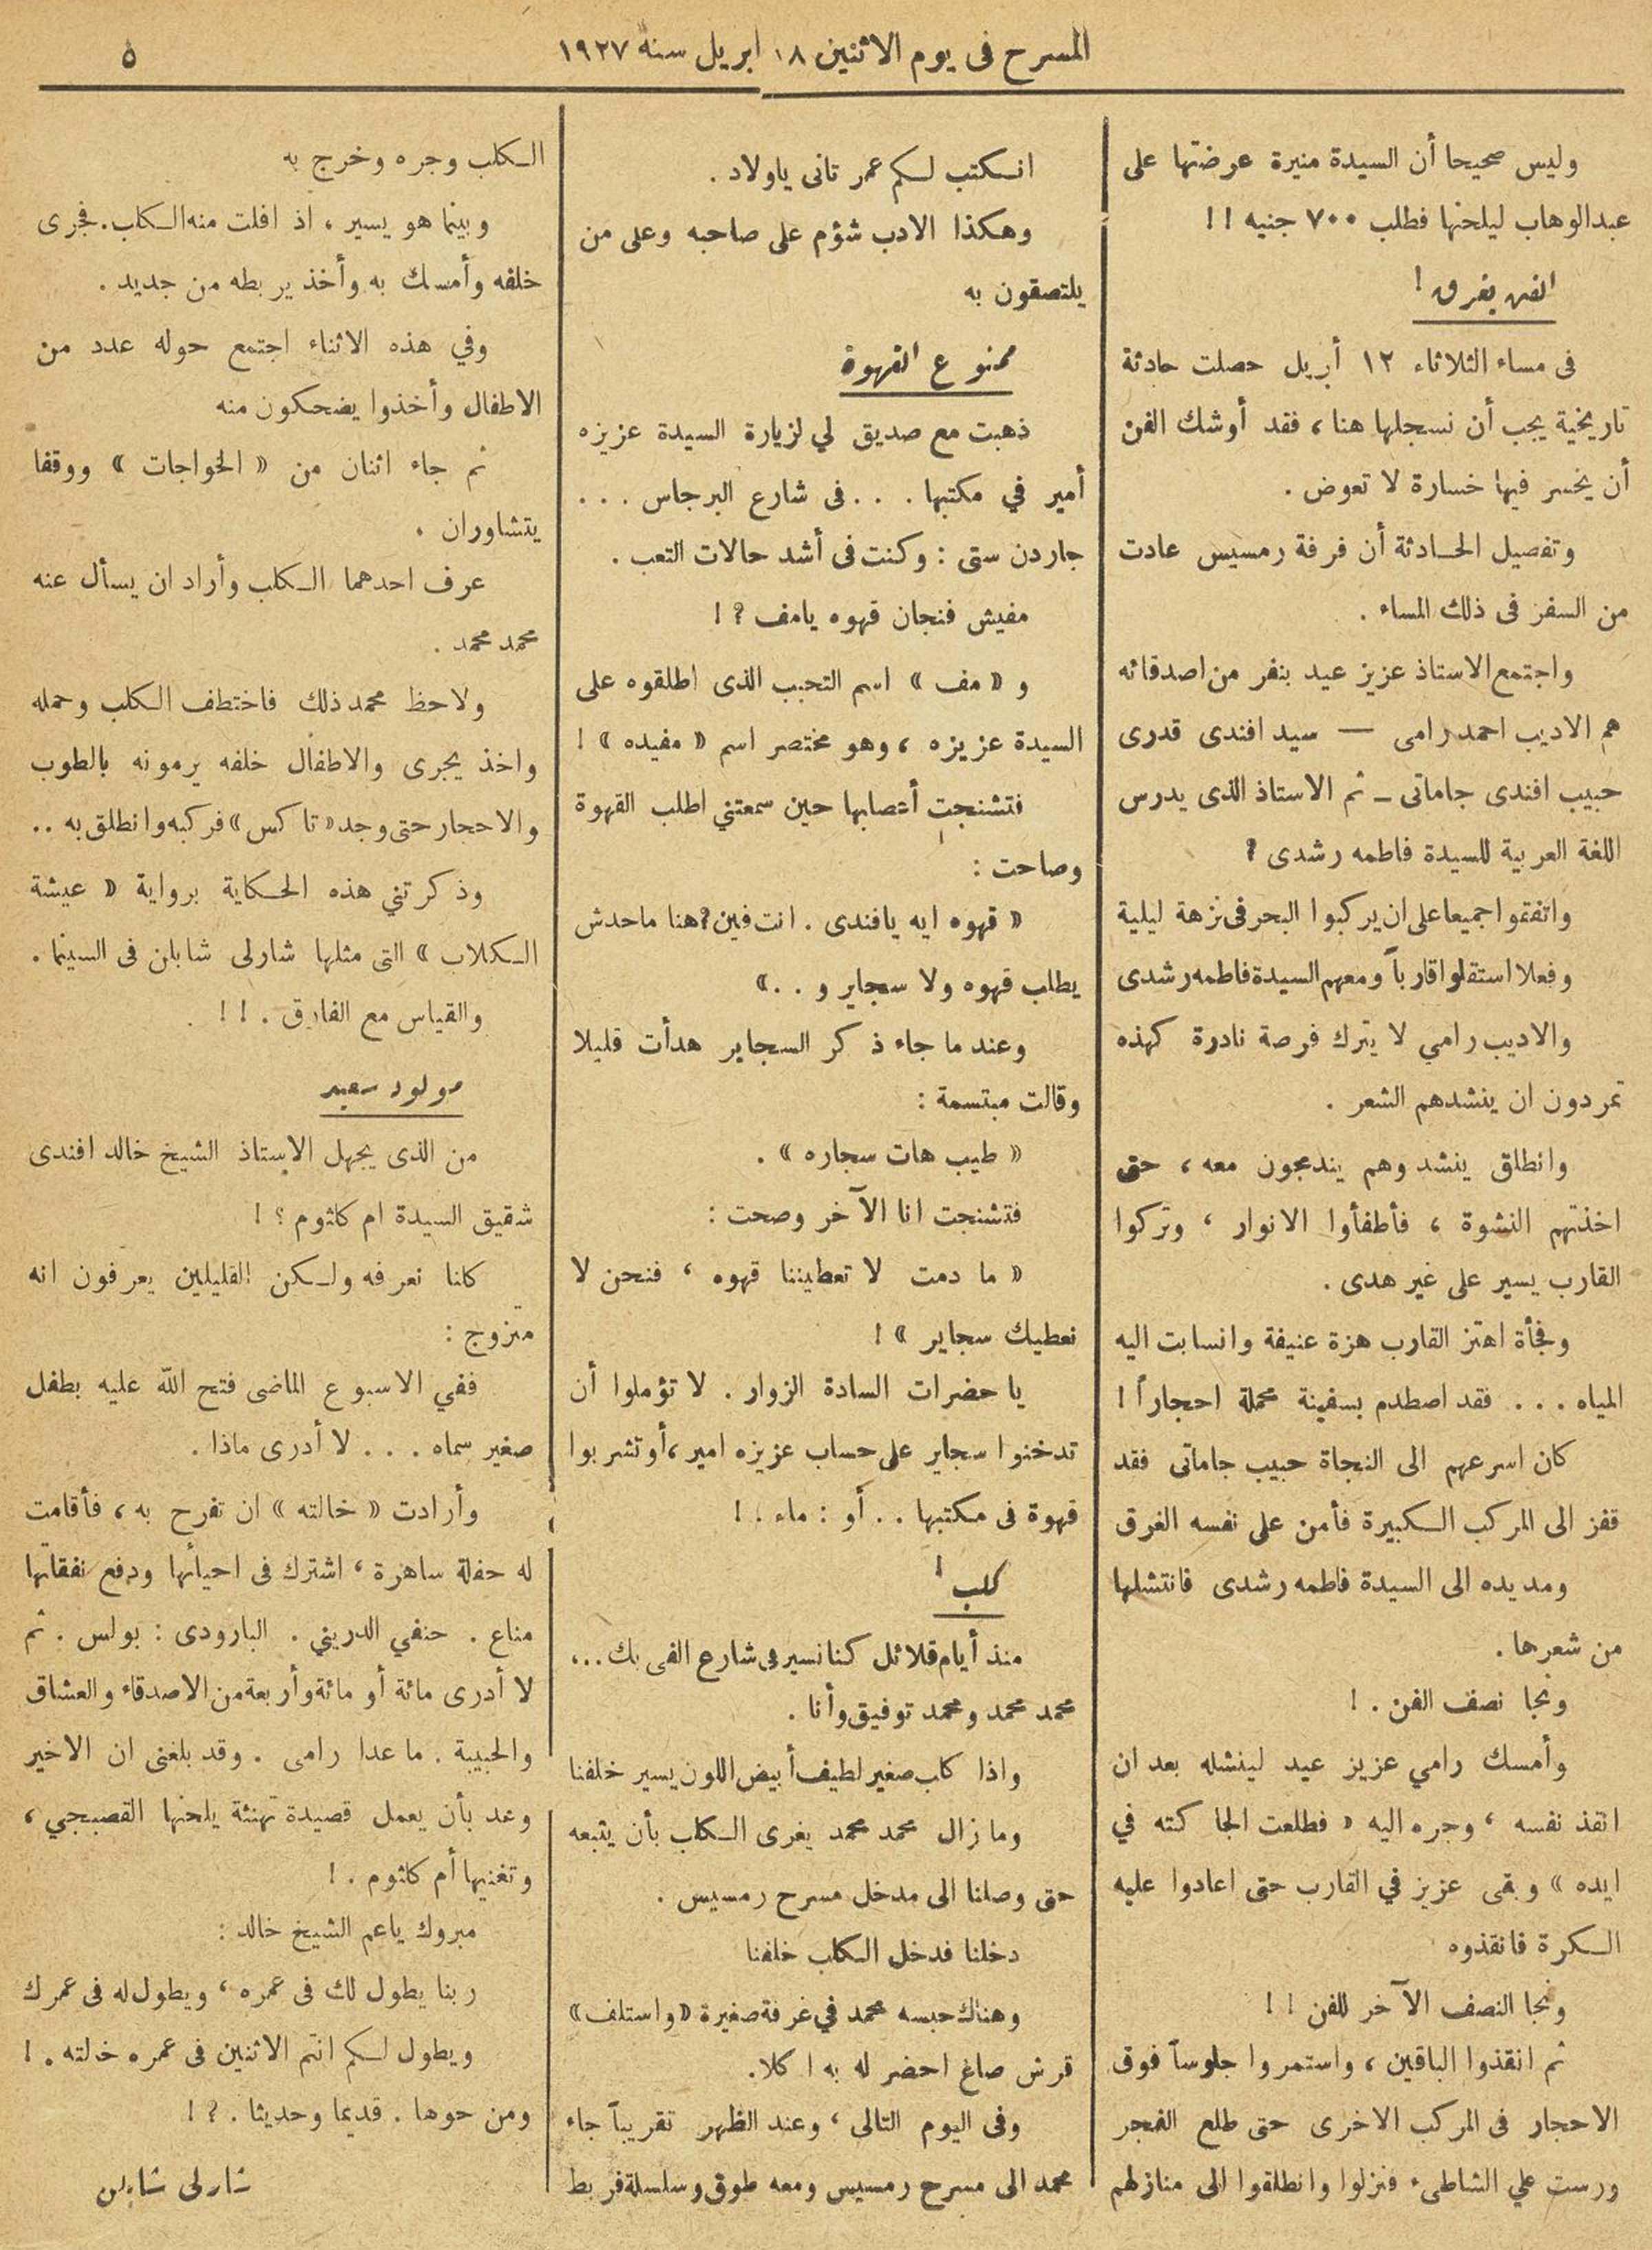 المسرح فى يوم الاثنين ١٨ ابريل سنة ١٩٢٧
٥
وليس صحيحا أن السيدة منيرة عرضتها على
عبدالوهاب ليلحنها فطلب ٧٠٠ جنيه !!
الفن يغرق !
فى مساء الثلاثاء ١٢ أبريل حصلت حادثة
تاريخية يجب أن نسجلها هنا ، فقد أوشك الفن
أن يخسر فيها خسارة لا تعوض .
وتفصيل الحادثة أن فرقة رمسيس عادت
من السفر فى ذلك المساء .
واجتمع الاستاذ عزيز عيد بنفر من اصدقائه
هم الاديب احمد رامى — سيد افندى قدرى
حبيب افندى جاماتى ـ ثم الاستاذ الذى يدرس
اللغة العربية للسيدة فاطمه رشدى ؟
واتفقوا جميعا على ان يركبوا البحر فى نزهة ليلية
وفعلا استقلوا قارباً ومعهم السيدة فاطمه رشدى
والاديب رامي لا يترك فرصة نادرة كهذه
تمر دون ان ينشدهم الشعر .
وانطلق ينشد وهم يندمجون معه ، حتى
اخذتهم النشوة ، فأطفأوا الانوار ، وتركوا
القارب يسير على غير هدى .
وفجأة اهتز القارب هزة عنيفة وانسابت اليه
المياه . . . فقد اصطدم بسفينة محملة احجاراً !
كان اسرعهم الى النجاة حبيب جاماتى فقد
قفز الى المركب الكبيرة فأمن على نفسه الغرق
ومد يده الى السيدة فاطمه رشدى فانتشلها
من شعرها .
ونجا نصف الفن . !
وأمسك رامي عزيز عيد لينشله بعد ان
انقذ نفسه ، وجره اليه « فطلعت الجاكته في
ايده » وبقى عزيز في القارب حتى اعادوا عليه
الكرة فانقذوه
ونجا النصف الآخر للفن !!
ثم انقذوا الباقين ، واستمروا جلوساً فوق
الاحجار فى المركب الاخرى حتى طلع الفجر
ورست علي الشاطىء فنزلوا وانطلقوا الى منازلهم
انكتب لكم عمر تانى ياولاد .
وهكذا الادب شؤم على صاحبه وعلى من
يلتصقون به
ممنوع القهوة
ذهبت مع صديق لي لزيارة السيدة عزيزه
أمير في مكتبها . . . فى شارع البرجاس . . .
جاردن ستى : وكنت فى أشد حالات التعب .
مفيش فنجان قهوه يامف ؟ !
و « مف » اسم التحبب الذى اطلقوه على
السيدة عزيزه ، وهو مختصر اسم « مفيده » !
فتشنجت أعصابها حين سمعتني اطلب القهوة
وصاحت :
« قهوه ايه يافندى . انت فين ؟ هنا ماحدش
يطلب قهوه ولا سجاير و . . »
وعند ما جاء ذكر السجاير هدأت قليلا
وقالت مبتسمة :
« طيب هات سجاره » .
فتشنجت انا الآخر وصحت :
« ما دمت لا تعطيننا قهوه ، فنحن لا
نعطيك سجاير » !
يا حضرات السادة الزوار . لا تؤملوا أن
تدخنوا سجاير على حساب عزيزه امير ، أو تشربوا
قهوة فى مكتبها . . أو : ماء . !
كلب !
منذ أيام قلائل كنا نسير فى شارع الفى بك ... ،
محمد محمد ومحمد توفيق وأنا .
واذا كلب صغير لطيف أبيض اللون يسير خلفنا
وما زال محمد محمد يغرى الكلب بأن يتبعه
حتى وصلنا الى مدخل مسرح رمسيس .
دخلنا فدخل الكلب خلفنا
وهناك حبسه محمد في غرفة صغيرة « واستلف »
قرش صاغ احضر له به اكلا .
وفى اليوم التالى ، وعند الظهر تقريباً جاء
محمد الى مسرح رمسيس ومعه طوق وسلسلة فربط
الكلب وجره وخرج به
وبينما هو يسير ، اذ افلت منه الكلب . فجرى
خلفه وأمسك به وأخذ يربطه من جديد .
وفي هذه الاثناء اجتمع حوله عدد من
الاطفال وأخذوا يضحكون منه
ثم جاء اثنان من « الخواجات » ووقفا
يتشاوران .
عرف احدهما الكلب وأراد ان يسأل عنه
محمد محمد .
ولاحظ محمد ذلك فاختطف الكلب وحمله
واخذ يجرى والاطفال خلفه يرمونه بالطوب
والاحجار حتى وجد « تاكس » فركبه وانطلق به ..
وذكرتني هذه الحكاية برواية « عيشة
الكلاب » التى مثلها شارلى شابلن فى السينما .
والقياس مع الفارق . !!
مولود سعيد
من الذى يجهل الاستاذ الشيخ خالد افندى
شقيق السيدة ام كلثوم ؟ !
كلنا نعرفه ولكن القليلين يعرفون انه
متزوج :
ففي الاسبوع الماضى فتح الله عليه بطفل
صغير سماه . . . لا أدرى ماذا .
وأرادت « خالته » ان تفرح به ، فأقامت
له حفلة ساهرة ، اشترك فى احيائها ودفع نفقاتها
مناع . حنفي الدريني . البارودى : بولس . ثم
لا أدرى مائة أو مائة وأربعة من الاصدقاء والعشاق
والحبيبة . ما عدا رامى . وقد بلغنى ان الاخير
وعد بأن يعمل قصيدة تهنئة يلحنها القصبجي ،
وتغنيها أم كلثوم . !
مبروك ياعم الشيخ خالد :
ربنا يطول لك فى عمره ، ويطول له فى عمرك
ويطول لكم انتم الاثنين فى عمره خالته . !
ومن حوها . قديما وحديثا . ؟ !
شارلى شابلن